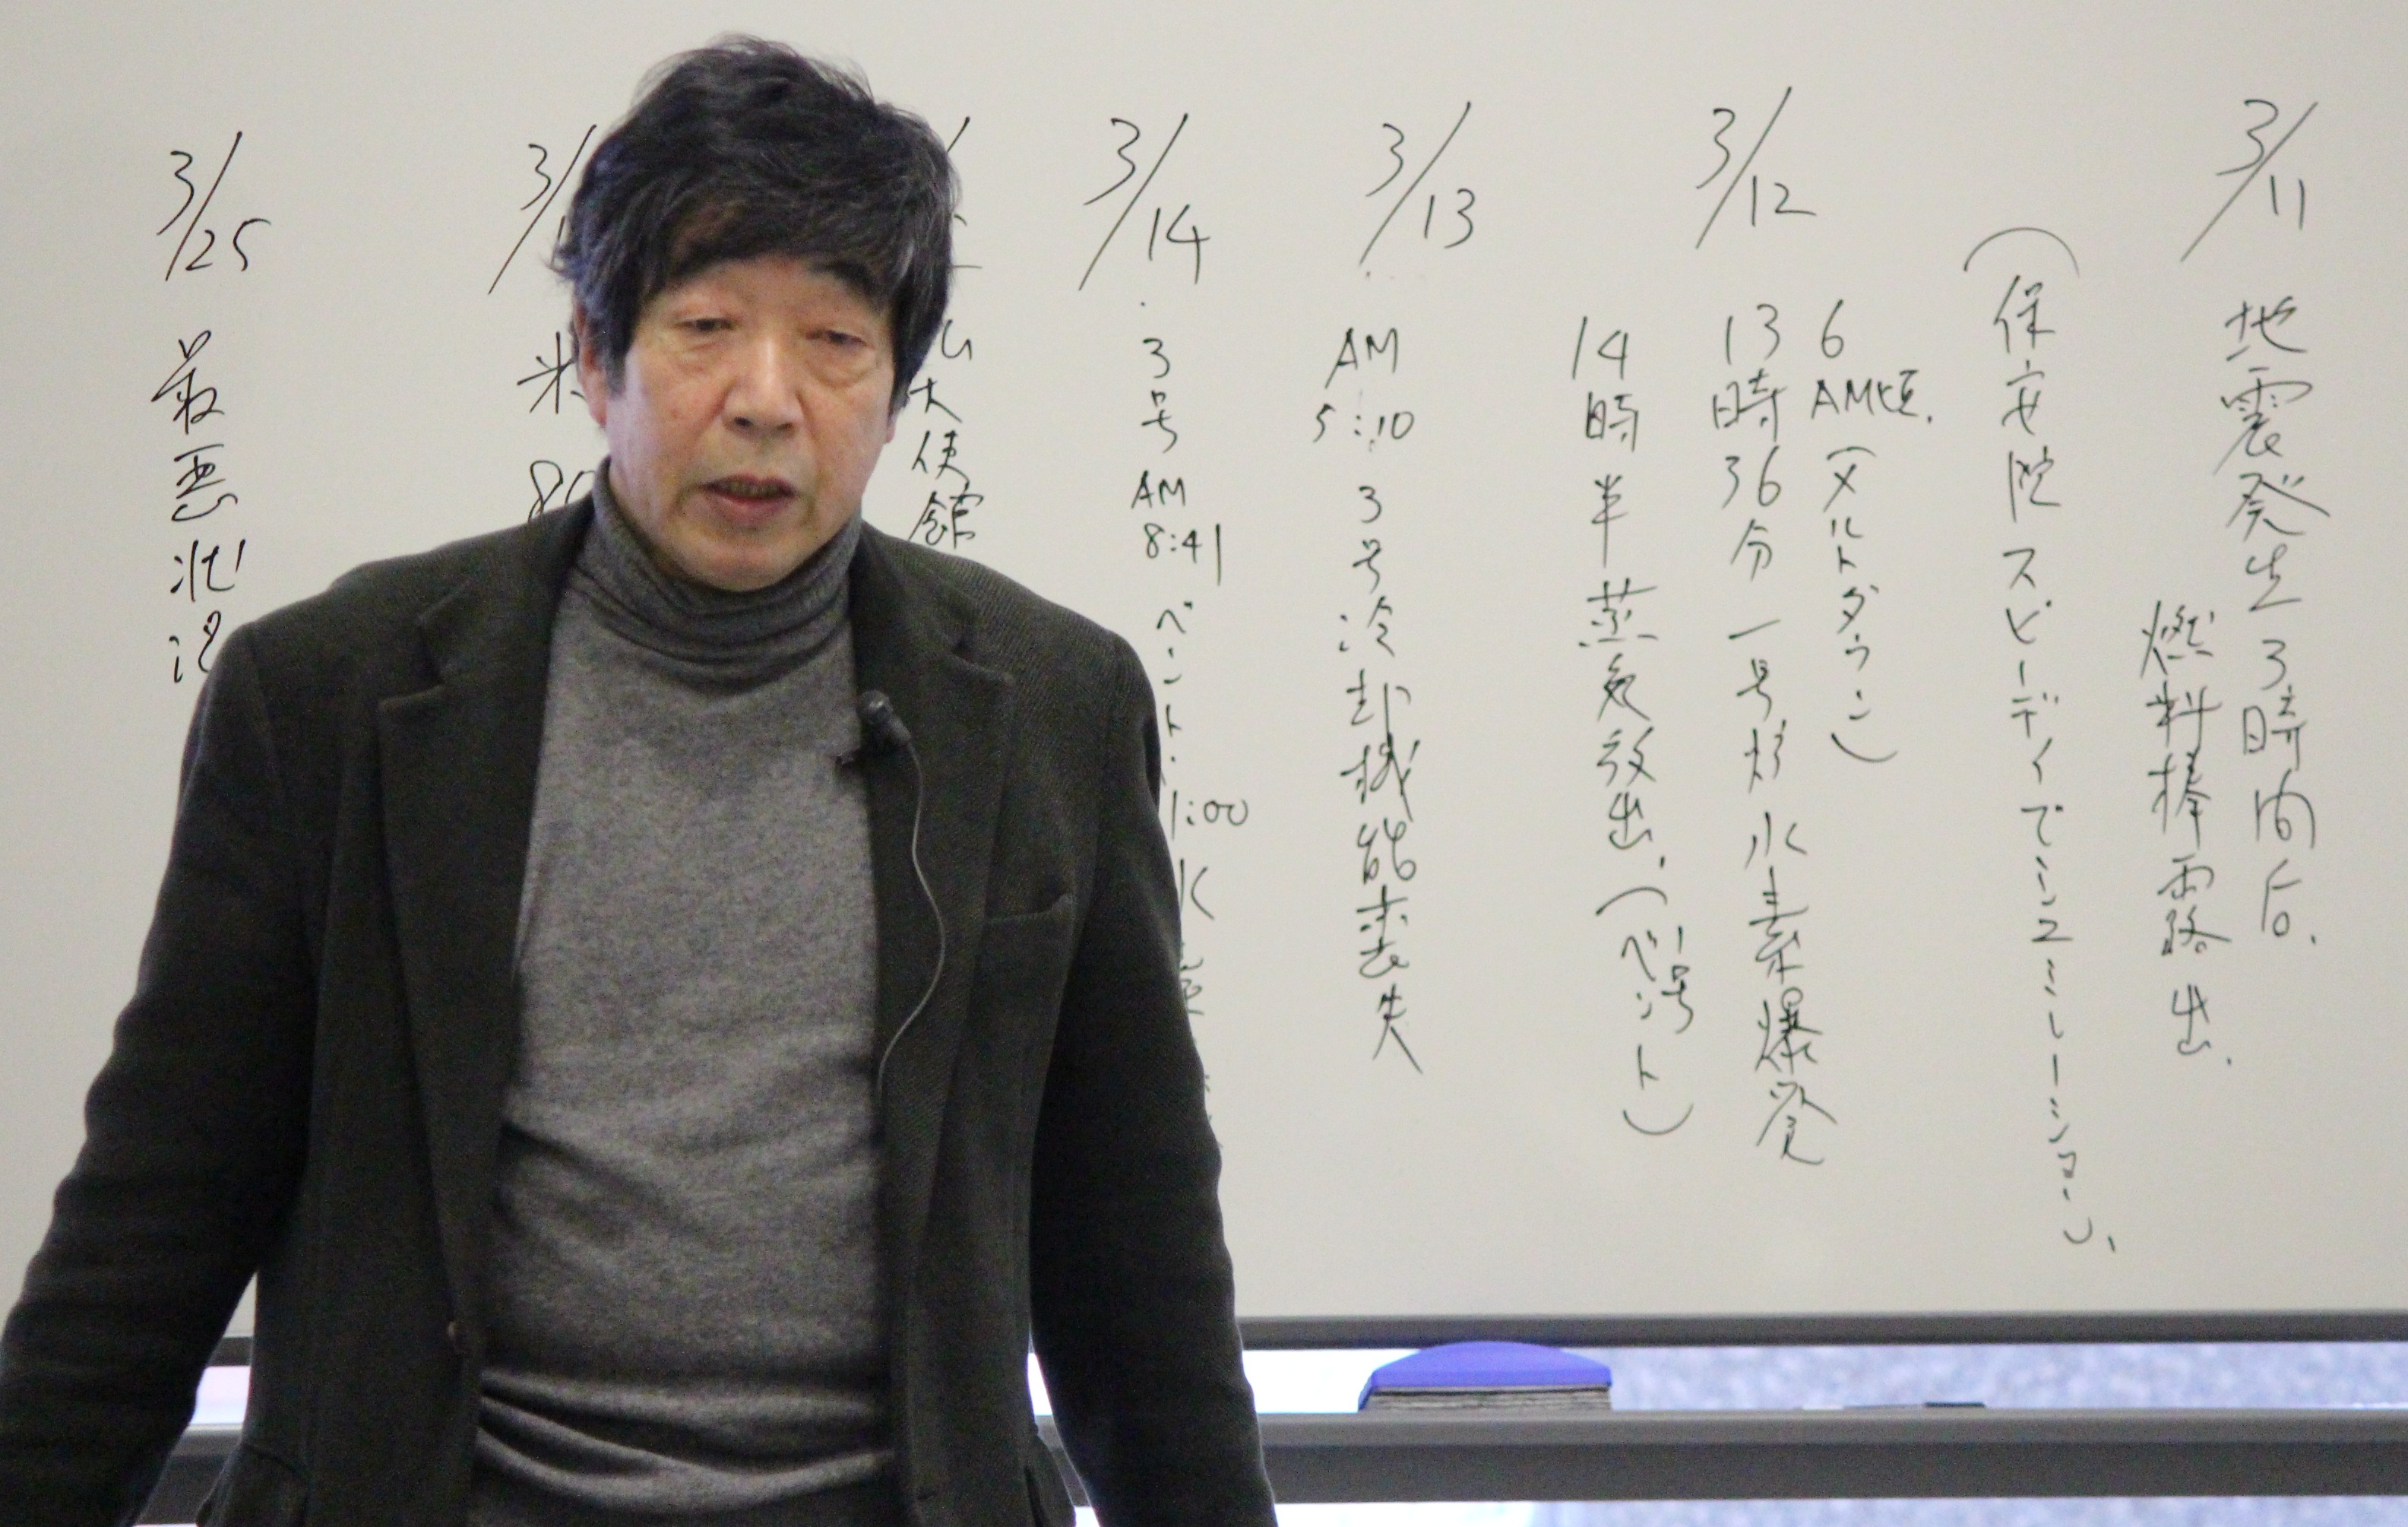 3/11
地震発生3時間后.
燃料棒露出.
(保安院スピーディでシュミレーション、
3/12
6AM頃.(メルトダウン)
13時36分一号炉水素爆発
14時半蒸気放出、(ベント)
1号
3/13
AM5:10 3号冷却機能喪失
3/14
3号AM8:41ベント.
1:00水
大使館
3/
米
3/25
最悪状況